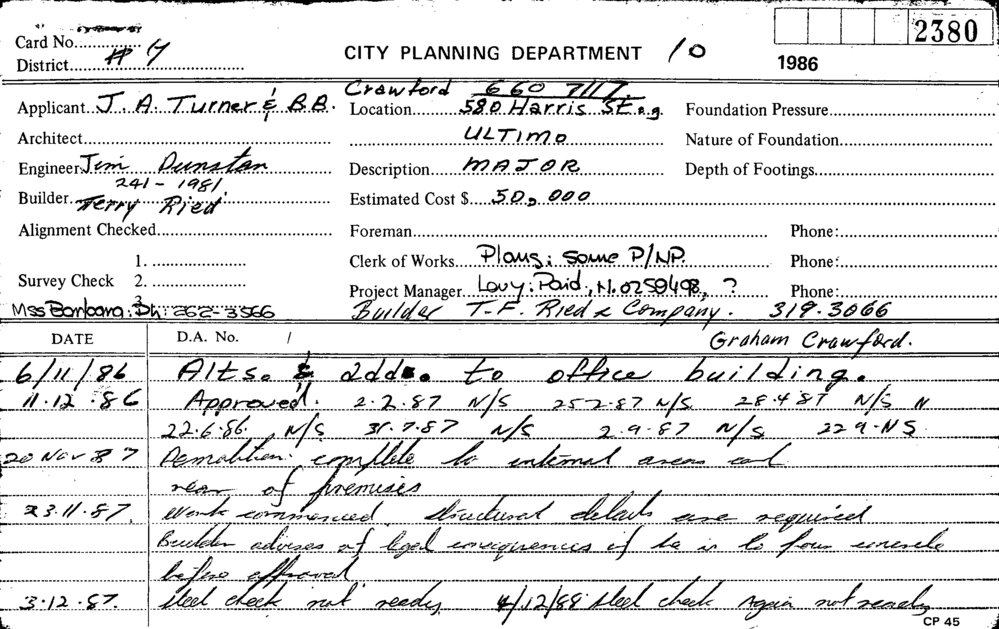 Card No.
District # 4
CITY PLANNING DEPARTMENT 10
1986
2380
Applicant J. A. Turner & B.B. Crawford 660 7117
Location 580 Harris St.
Foundation Pressure
Architect
ULTIMO
Nature of Foundation
Engineer Jim Dunstan
Description MAJOR
Depth of Footings
241-1981
Builder Terry Ried
Estimated Cost $ 50,000
Alignment Checked
Foreman
Phone:
1.
Clerk of Works Plans: some P/NP.
Phone:
Survey Check 2.
3.
Project Manager Levy: Paid, N. 0259498, ?
Phone:
Mss Barbara: Ph: 262-3566
Builder T.F. Ried & Company. 319.3066
DATE
D.A. No. /
Graham Crawford.
6/11/86 Alts. & add. to office building.
11.12.86 Approved. 2.2.87 N/S 25 2.87 N/S 28.4 87 N/S
22.6.86. N/S 31.7.87 N/S 2.9.87 N/S 22 9. NS.
20 Nov 87 Demolition complete to internal areas and
rear of premises
23.11.87. Work commenced. structural details are required
Builder advises of legal consequences if he is to pour concrete
before approval
3.12.87. Steel check not ready, 4/12/88 steel check again not ready
CP 45